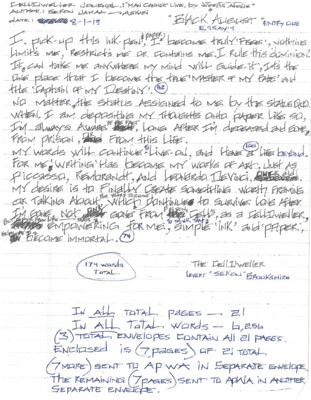 CellDweller - Journal: "Man Cannot Live, by Words Alone"
Author: Sekou Jaman - Askari
date: 8-1-19 "Black August" Entry One
Essay 4
I, pick-up this ink pen, & paper, I become truly "Free", nothing
limits me, restricts me or contains me. I rule this dominion
It, can take me anywhere my mind will guide it, it's the
one place that I become the true "Master of my Fate" and
the "Captain of my Destiny". 62
No matter, the status assigned to me by the state
When, I am depositing my thoughts onto paper like so,
I'm always aware of the fact Long After I'm deceased and gone,
From prison, From this life.
My words will continue to live on, and have a life beyond. 100
For me, writing has become my works of Art. Just as
Picasso, Rembrandt, and Leonardo Devinci,
My desire is to Finally Create something worth praising
or Talking About, which continues to survive Long After
I'm gone, Not gone From Cell, as a CellDweller,
Empowering for me, simple 'ink' and paper,
I become immortal. 74
174 words
Total.
The CellDweller
Lovert "Sekou" Brookshire
In All Total Pages — 21
In All Total Words — 6,256
(3) Total envelopes contain all 21 pages.
Enclosed is (7 pages) of 21 total
(7 more) sent to APWA in separate envelope
The remaining (7 pages) sent to APWA in another
separate envelope.